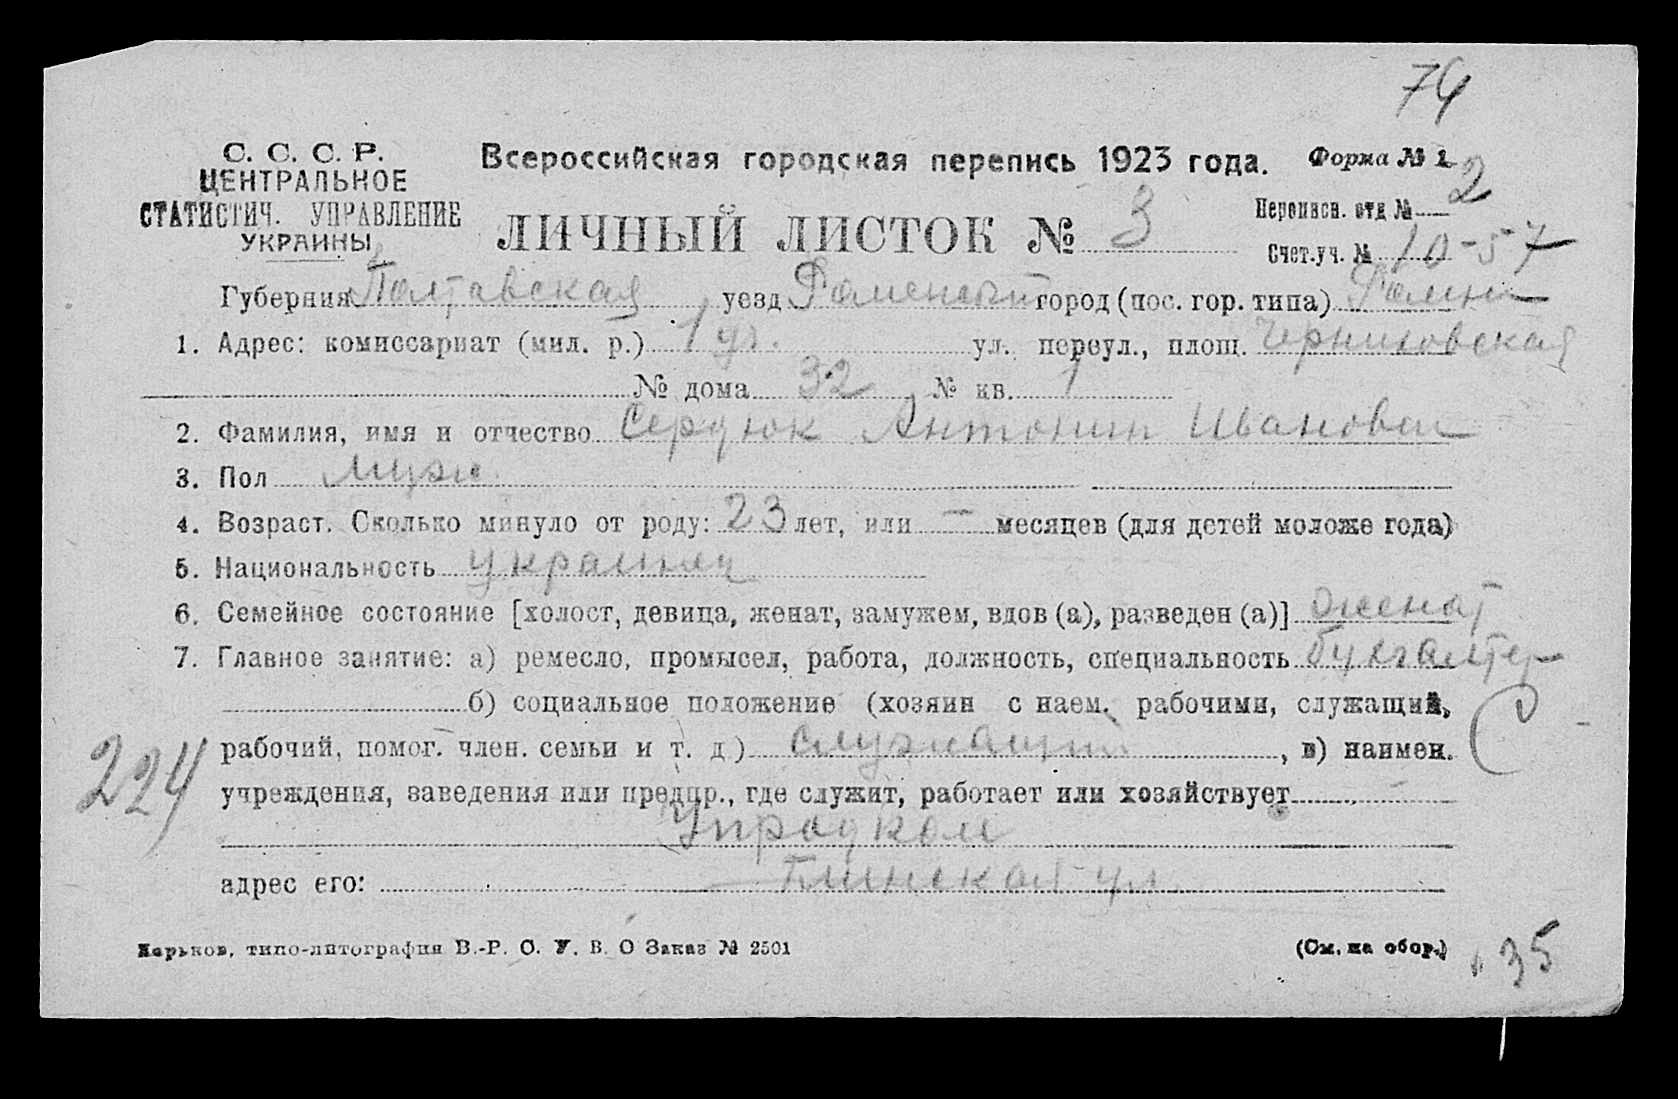 74
С. С. С. Р.
ЦЕНТРАЛЬНОЕ
СТАТИСТИЧ. УПРАВЛЕНИЕ
УКРАИНЫ
Всероссийская городская перепись 1923 года.
Форма № 1
ЛИЧНЫЙ ЛИСТОК № 3
Переписн. отд № 2
Счет.уч. № 10-57
Губерния Полтавская уезд Роменский город (пос. гор. типа) Ромны
1. Адрес: комиссариат (мил. р.) 1 ул. переул., площ. Черниховская
№ дома 32 № кв. 1
2. Фамилия, имя и отчество Сердюк Антонин Иванович
3. Пол муж.
4. Возраст. Сколько минуло от роду: 23 лет, или — месяцев (для детей моложе года)
5. Национальность украинец
6. Семейное состояние [холост, девица, женат, замужем, вдов (а), разведен (а)] женат
7. Главное занятие: а) ремесло, промысел, работа, должность, специальность бухгалтер
б) социальное положение (хозяин с наем. рабочими, служащий,
рабочий, помог. член. семьи и т. д) служащий, в) наимен.
224
учреждения, заведения или предпр., где служит, работает или хозяйствует
Упродком
адрес его: ул.
Харьков, типо-литография В.-Р. С. У. В. О Заказ № 2501
(См. на обор.)
35